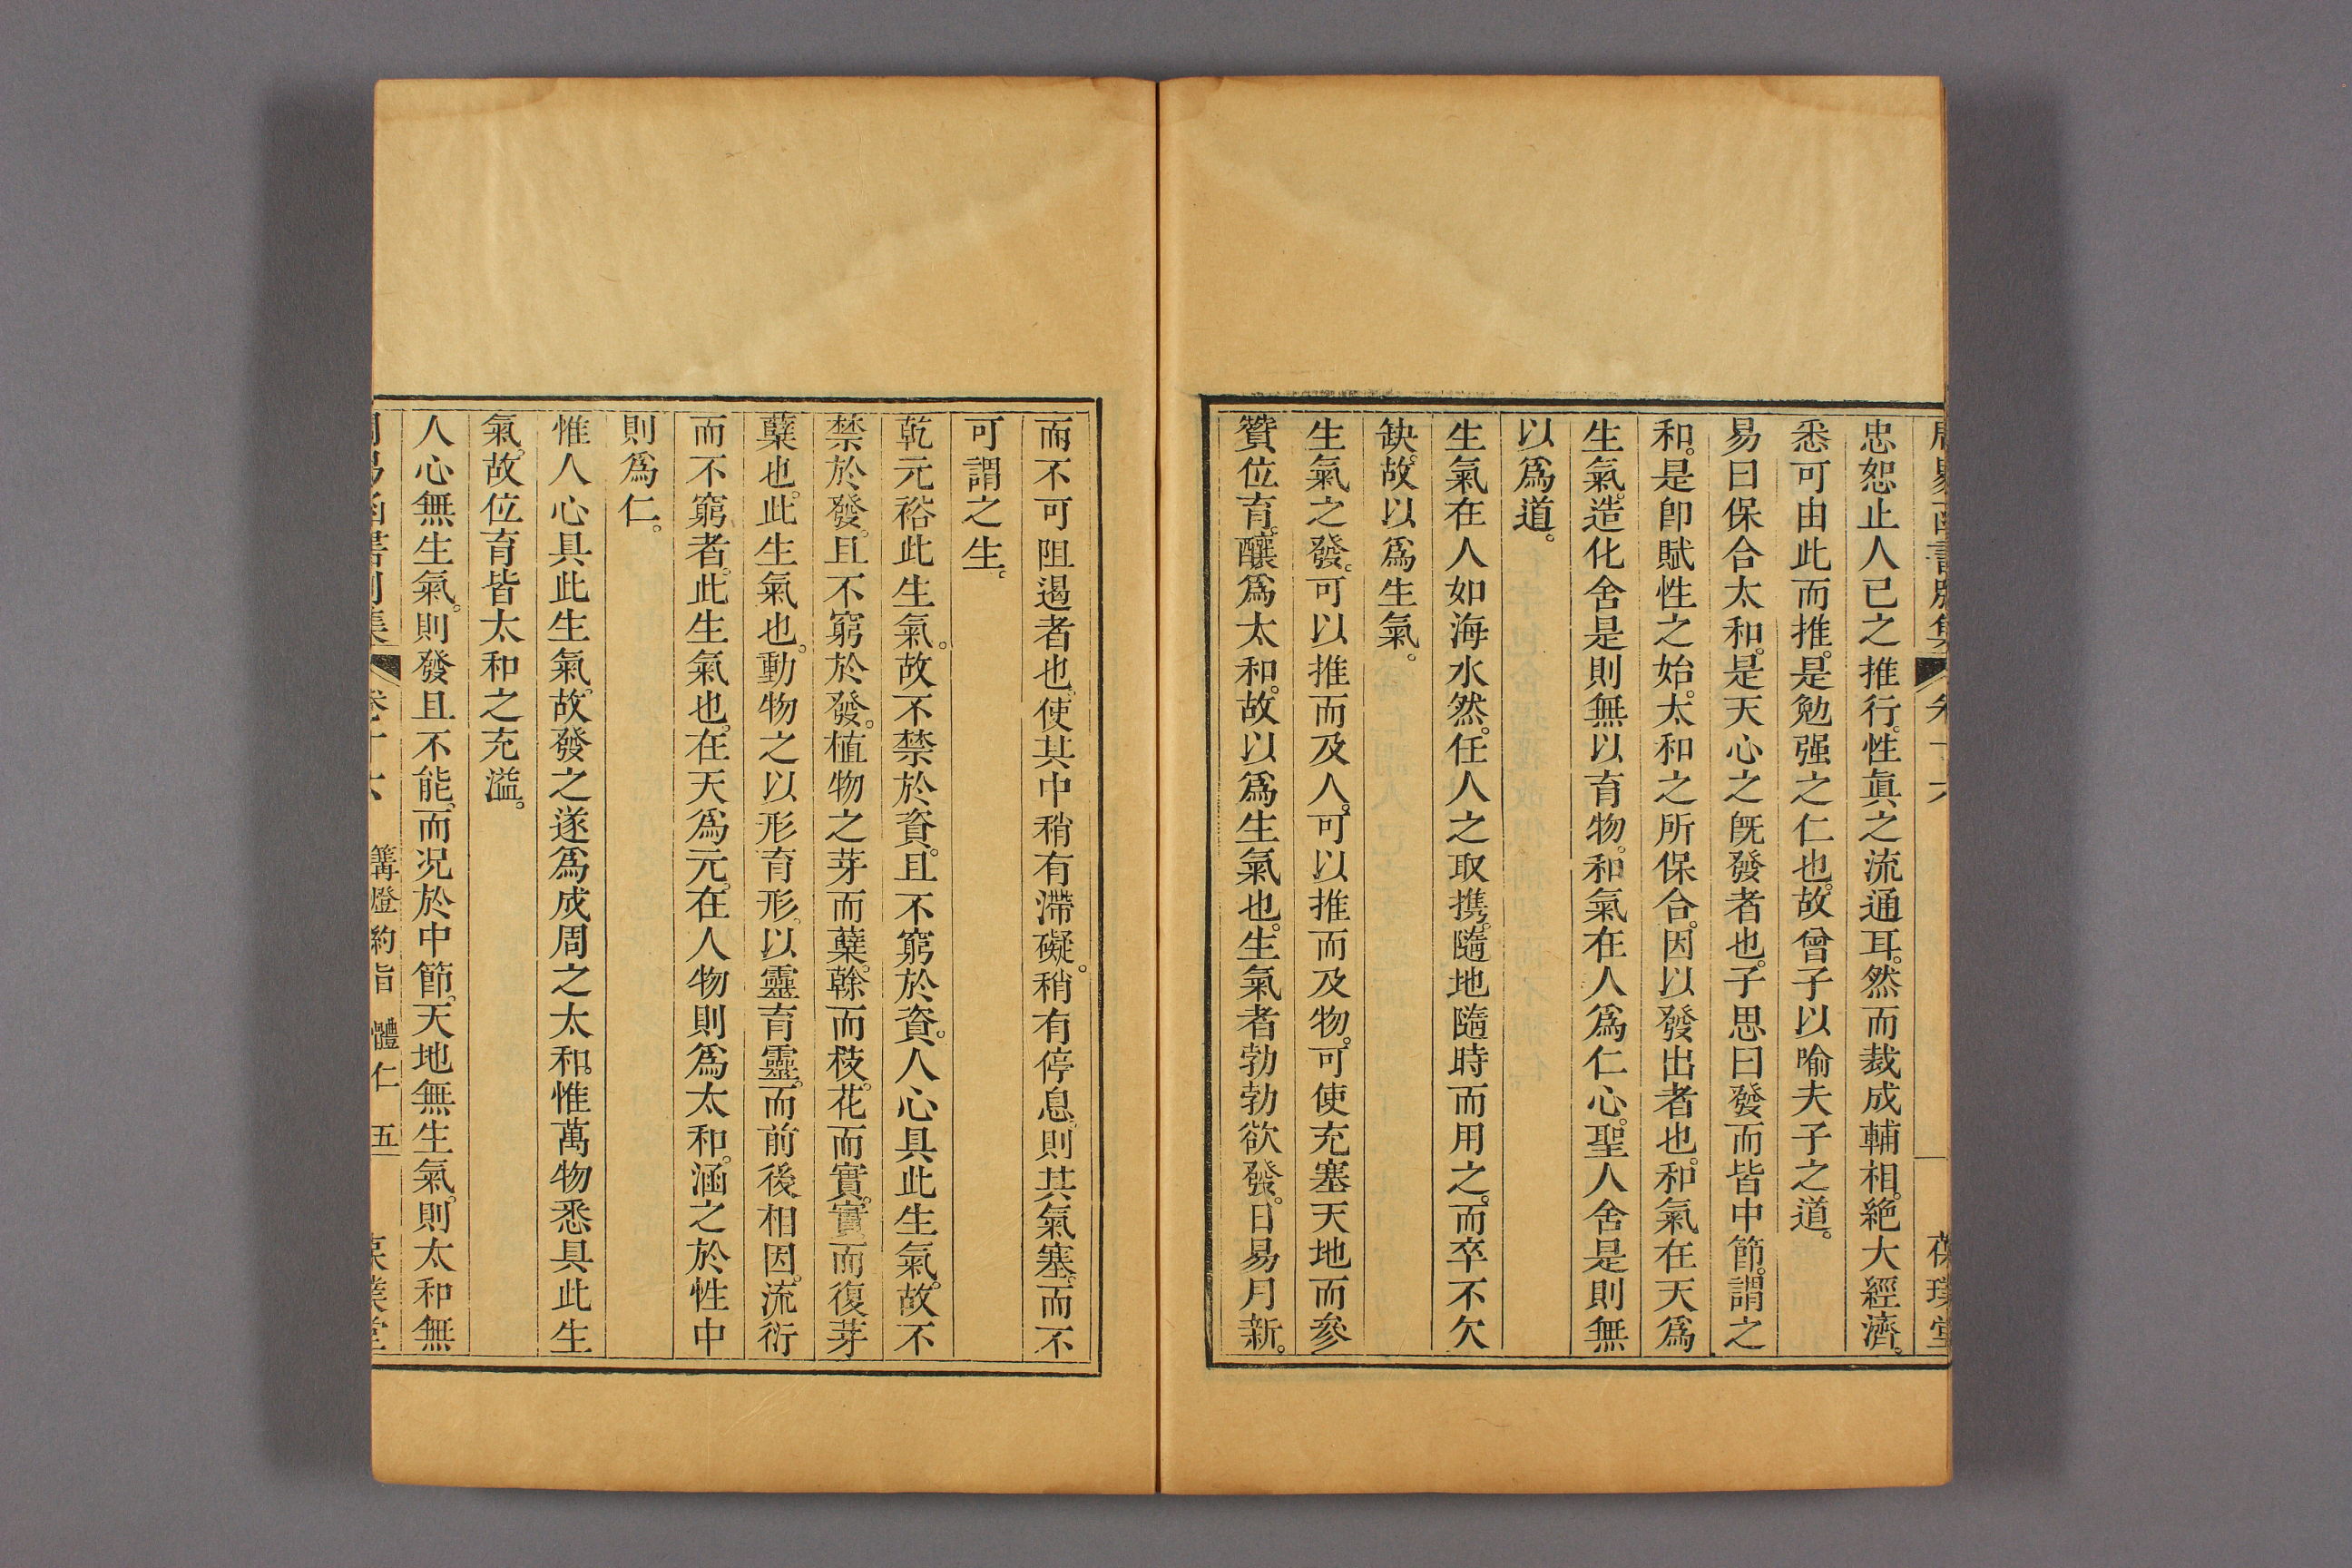 忠恕止人已之推行。性眞之流通耳。然而裁成輔相。絶大經濟。
悉可由此而推。是勉强之仁也。故曾子以喻夫子之道。
易曰保合太和。是天心之旣發者也。子思曰發而皆中節。謂之
和。是卽賦性之始。太和之所保合。因以發出者也。和氣在天爲
生氣。造化舍是則無以育物。和氣在人爲仁心。聖人舍是則無
以爲道。
生氣在人如海水然。任人之取携。隨地隨時而用之。而卒不欠
缺。故以爲生氣。
生氣之發。可以推而及人。可以推而及物。可使充塞天地而參
贊位育。釀爲太和。故以爲生氣也。生氣者勃勃欲發。日易月新。
而不可阻遏者也。使其中稍有滯礙。稍有停息。則其氣塞。而不
可謂之生。
乾元裕此生氣。故不禁於資。且不窮於資。人心具此生氣。故不
禁於發。且不窮於發。植物之芽而蘖。榦而枝。花而實。實而復芽
蘖也。此生氣也。動物之以形育形。以靈育靈。而前後相因。流衍
而不窮者。此生氣也。在天爲元。在人物則爲太和。涵之於性中
則爲仁。
惟人心具此生氣。故發之遂爲成周之太和。惟萬物悉具此生
氣。故位育皆太和之充溢。
人心無生氣。則發且不能。而况於中節。天地無生氣。則太和無
卷十六 篝燈約旨 體仁 五